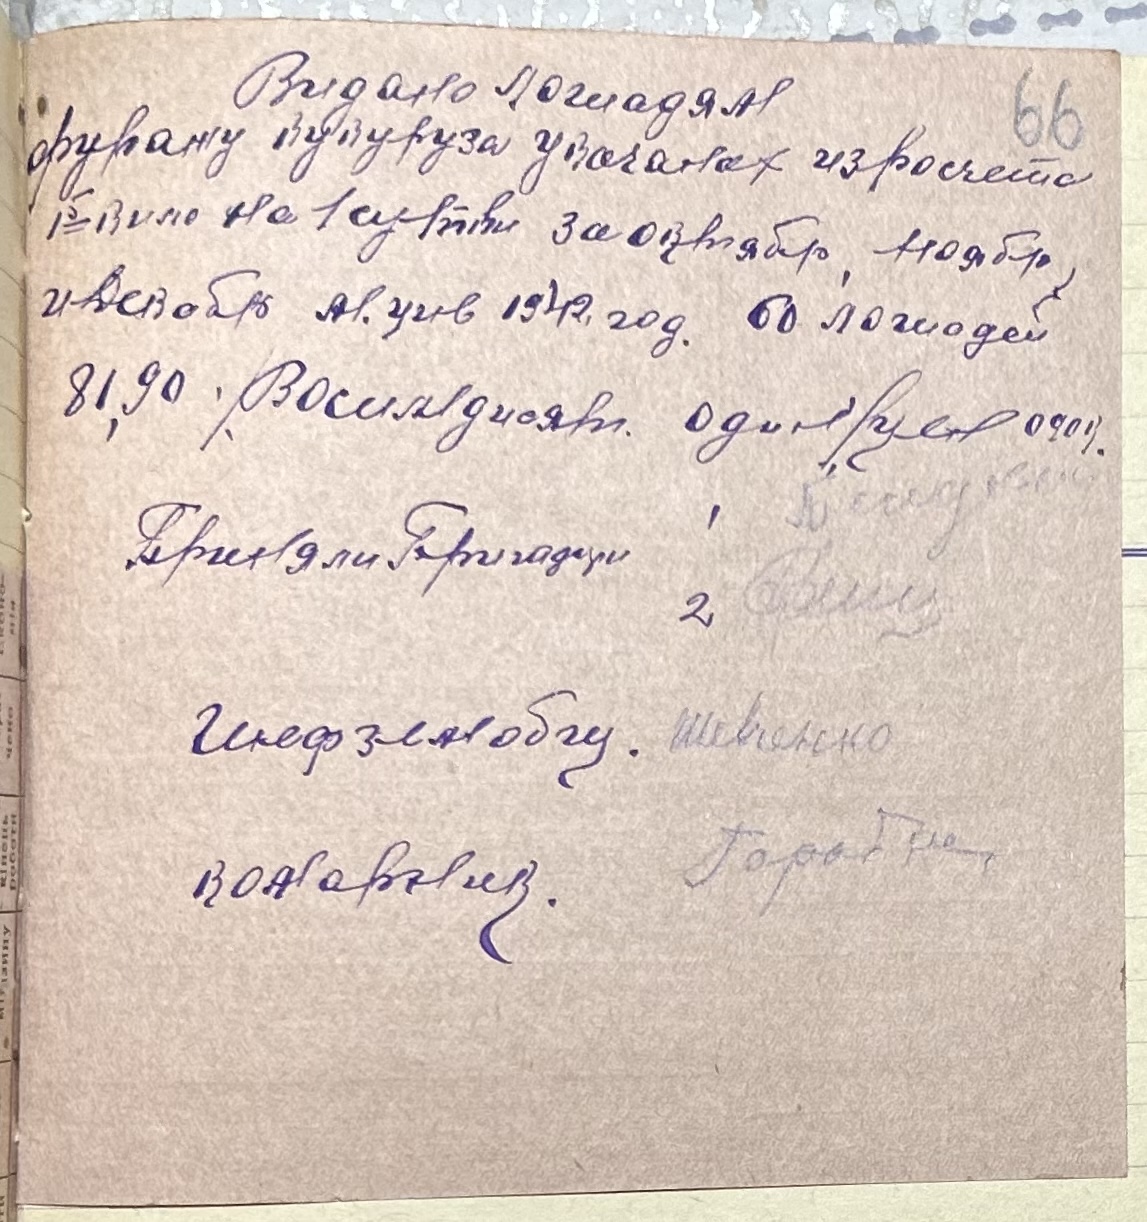 66
Видано лошадям
фуражу кукуруза укачанах израсчета
кило на 1 сутки за октябр, ноябр,
и декабр м. ців 1942 год. 60 лошадей
81,90. Восимдисят. один цен 090к.
1
Приняли Бригадири
2
Шеф землобщу. Шевченко
комарник.